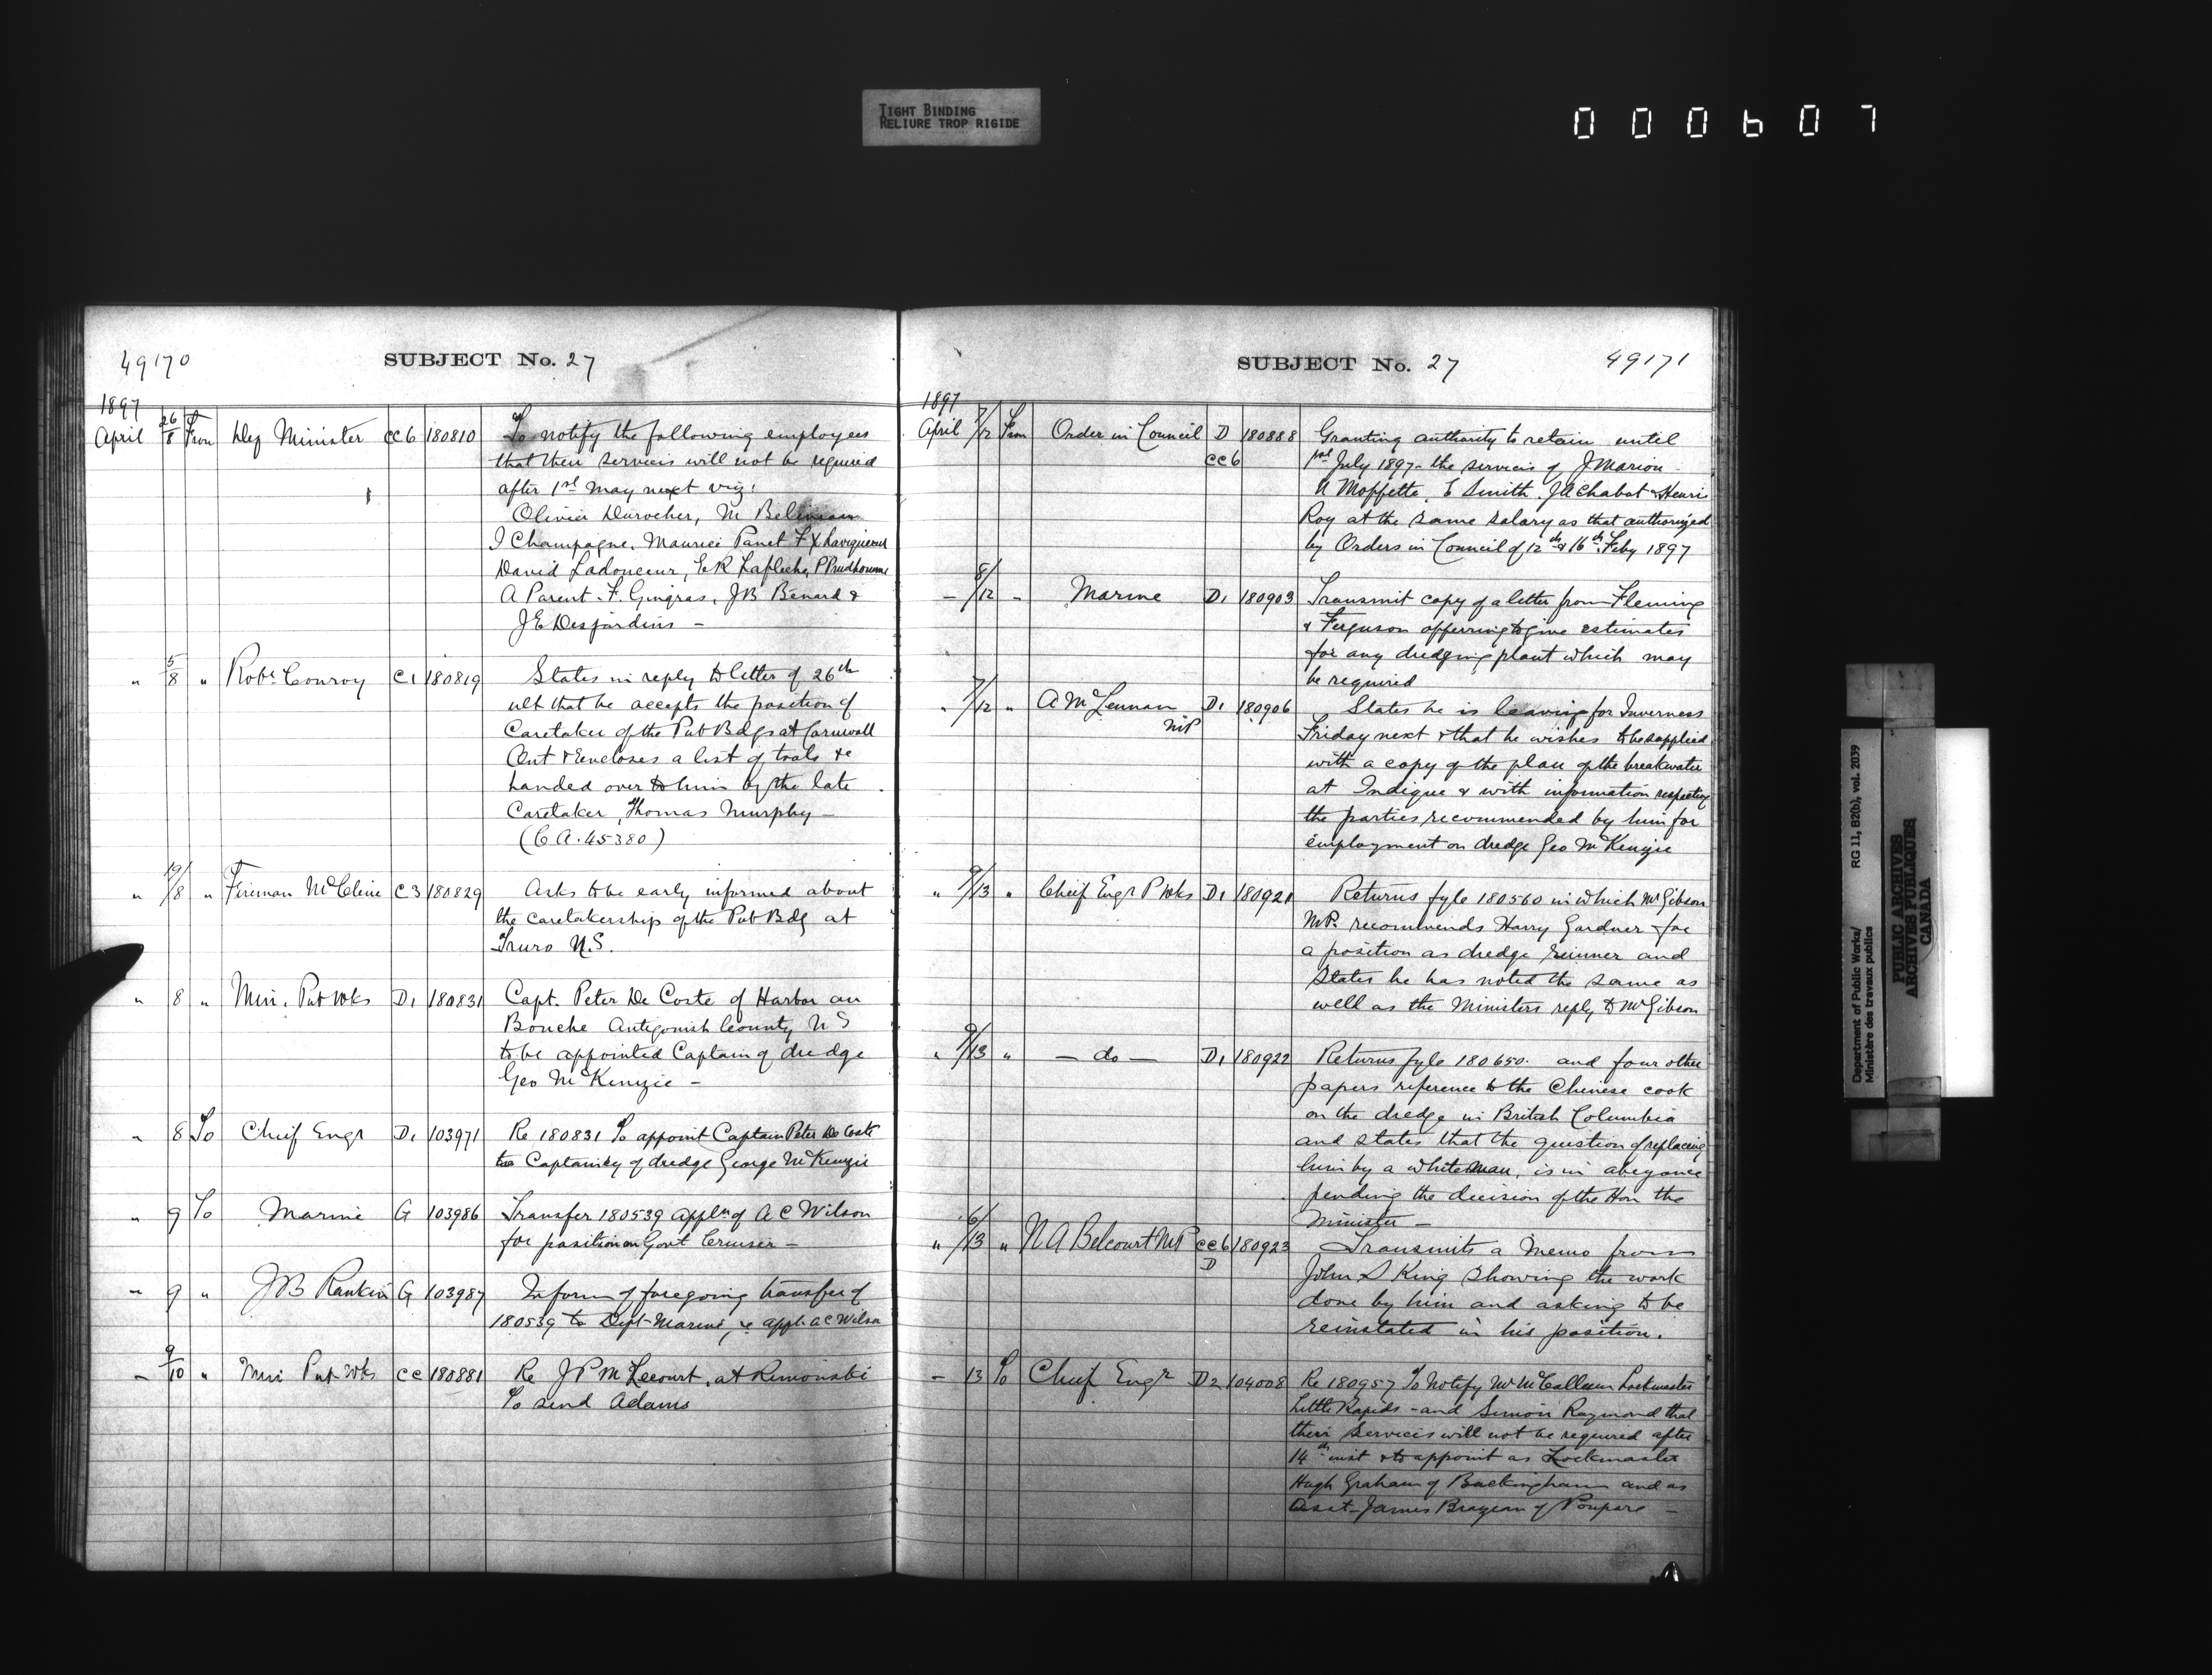 TIGHT BINDING
RELIURE TROP RIGIDE
000607
49170
SUBJECT No. 27
1897
April 26/8 From Dep Minister CC6 180810 To notify the following employees
that their services will not be required
after 1st May next viz:
Olivier Durocher, M
I Champagne, Maurice Panet F X Lavigueur
David Ladouceur, E R Lafleche, P Prudhomme
A Parent. F. Gingras, JB Benard &
J E Desjardins —
" 5/8 " Robt Conroy C1 180819 States in reply to letter of 26th
ult that he accepts the position of
Caretaker of the Pub Bdgs at Cornwall
Ont & Encloses a list of tools &c
handed over to him by the late
Caretaker, Thomas Murphy —
(C A. 45380)
" 19/8 " Fireman McCline C3 180829 Asks to be early informed about
the caretakership of the Pub Bdg at
Truro N.S.
" 8 " Min. Pub Wks D1 180831 Capt. Peter De Coste of Harbor au
Bouche Antigonish County N S
to be appointed Captain of dredge
Geo McKenzie —
" 8 To Chief Engr D1 103971 Re 180831 To appoint Captain Peter De Coste
to Captaincy of dredge George McKenzie
" 9 To Marine G 103986 Transfer 180539 appln of A C Wilson
for position on Govt Cruiser —
" 9 " J B Rankin G 103987 Inform of foregoing transfer of
180539 to Dept Marine, re appl. A C Wilson
— 9/10 " Min Pub Wks CC 180881 Re J P M Lecourt, at Rimouski
To send Adams
SUBJECT No. 27
49171
1897
April 7/12 From Order in Council D 180888 Granting authority to retain until
CC6 1st July 1897 - the services of J Marion -
N Moffette, E Smith, J A Chabot & Henri
Roy at the same salary as that authorized
by Orders in Council of 12th & 16th Feby 1897
— 8/12 " Marine D1 180903 Transmit copy of a letter from Fleming
& Ferguson offerring to give estimates
for any dredging plant which may
be required
" 7/12 " A McLennan D1 180906 States he is leaving for Inverness
MP Friday next & that he wishes to be supplied
with a copy of the plan of the breakwater
at Indique & with information respecting
the parties recommended by him for
employment on dredge Geo McKenzie
" 9/13 " Chief Engr P Wks D1 180921 Returns fyle 180560 in which Mr Gibson
M.P. recommends Harry Gardner for
a position as dredge runner and
States he has noted the same as
well as the Ministers reply to Mr Gibson
" 9/13 " — do — D1 180922 Returns fyle 180650. and four other
papers reference to the Chinese cook
on the dredge in British Columbia
and states that the question of replacing
him by a white man, is in abeyance
pending the decision of the Hon the
Minister —
" 6/13 " N A Belcourt MP CC6 180923 Transmits a Memo from
D John S King showing the work
done by him and asking to be
reinstated in his position.
— 13 To Chief Engr D2 104008 Re 180957 To Notify Mr McCallum Lockmaster
Little Rapids - and Simon Raymond that
their services will not be required after
14th inst & to appoint as Lockmaster
Hugh Graham of Buckingham and as
Asst - James of Poupore —
Department of Public Works/
Ministère des travaux publics
RG 11, B2(b), vol. 2039
PUBLIC ARCHIVES
ARCHIVES PUBLIQUES
CANADA